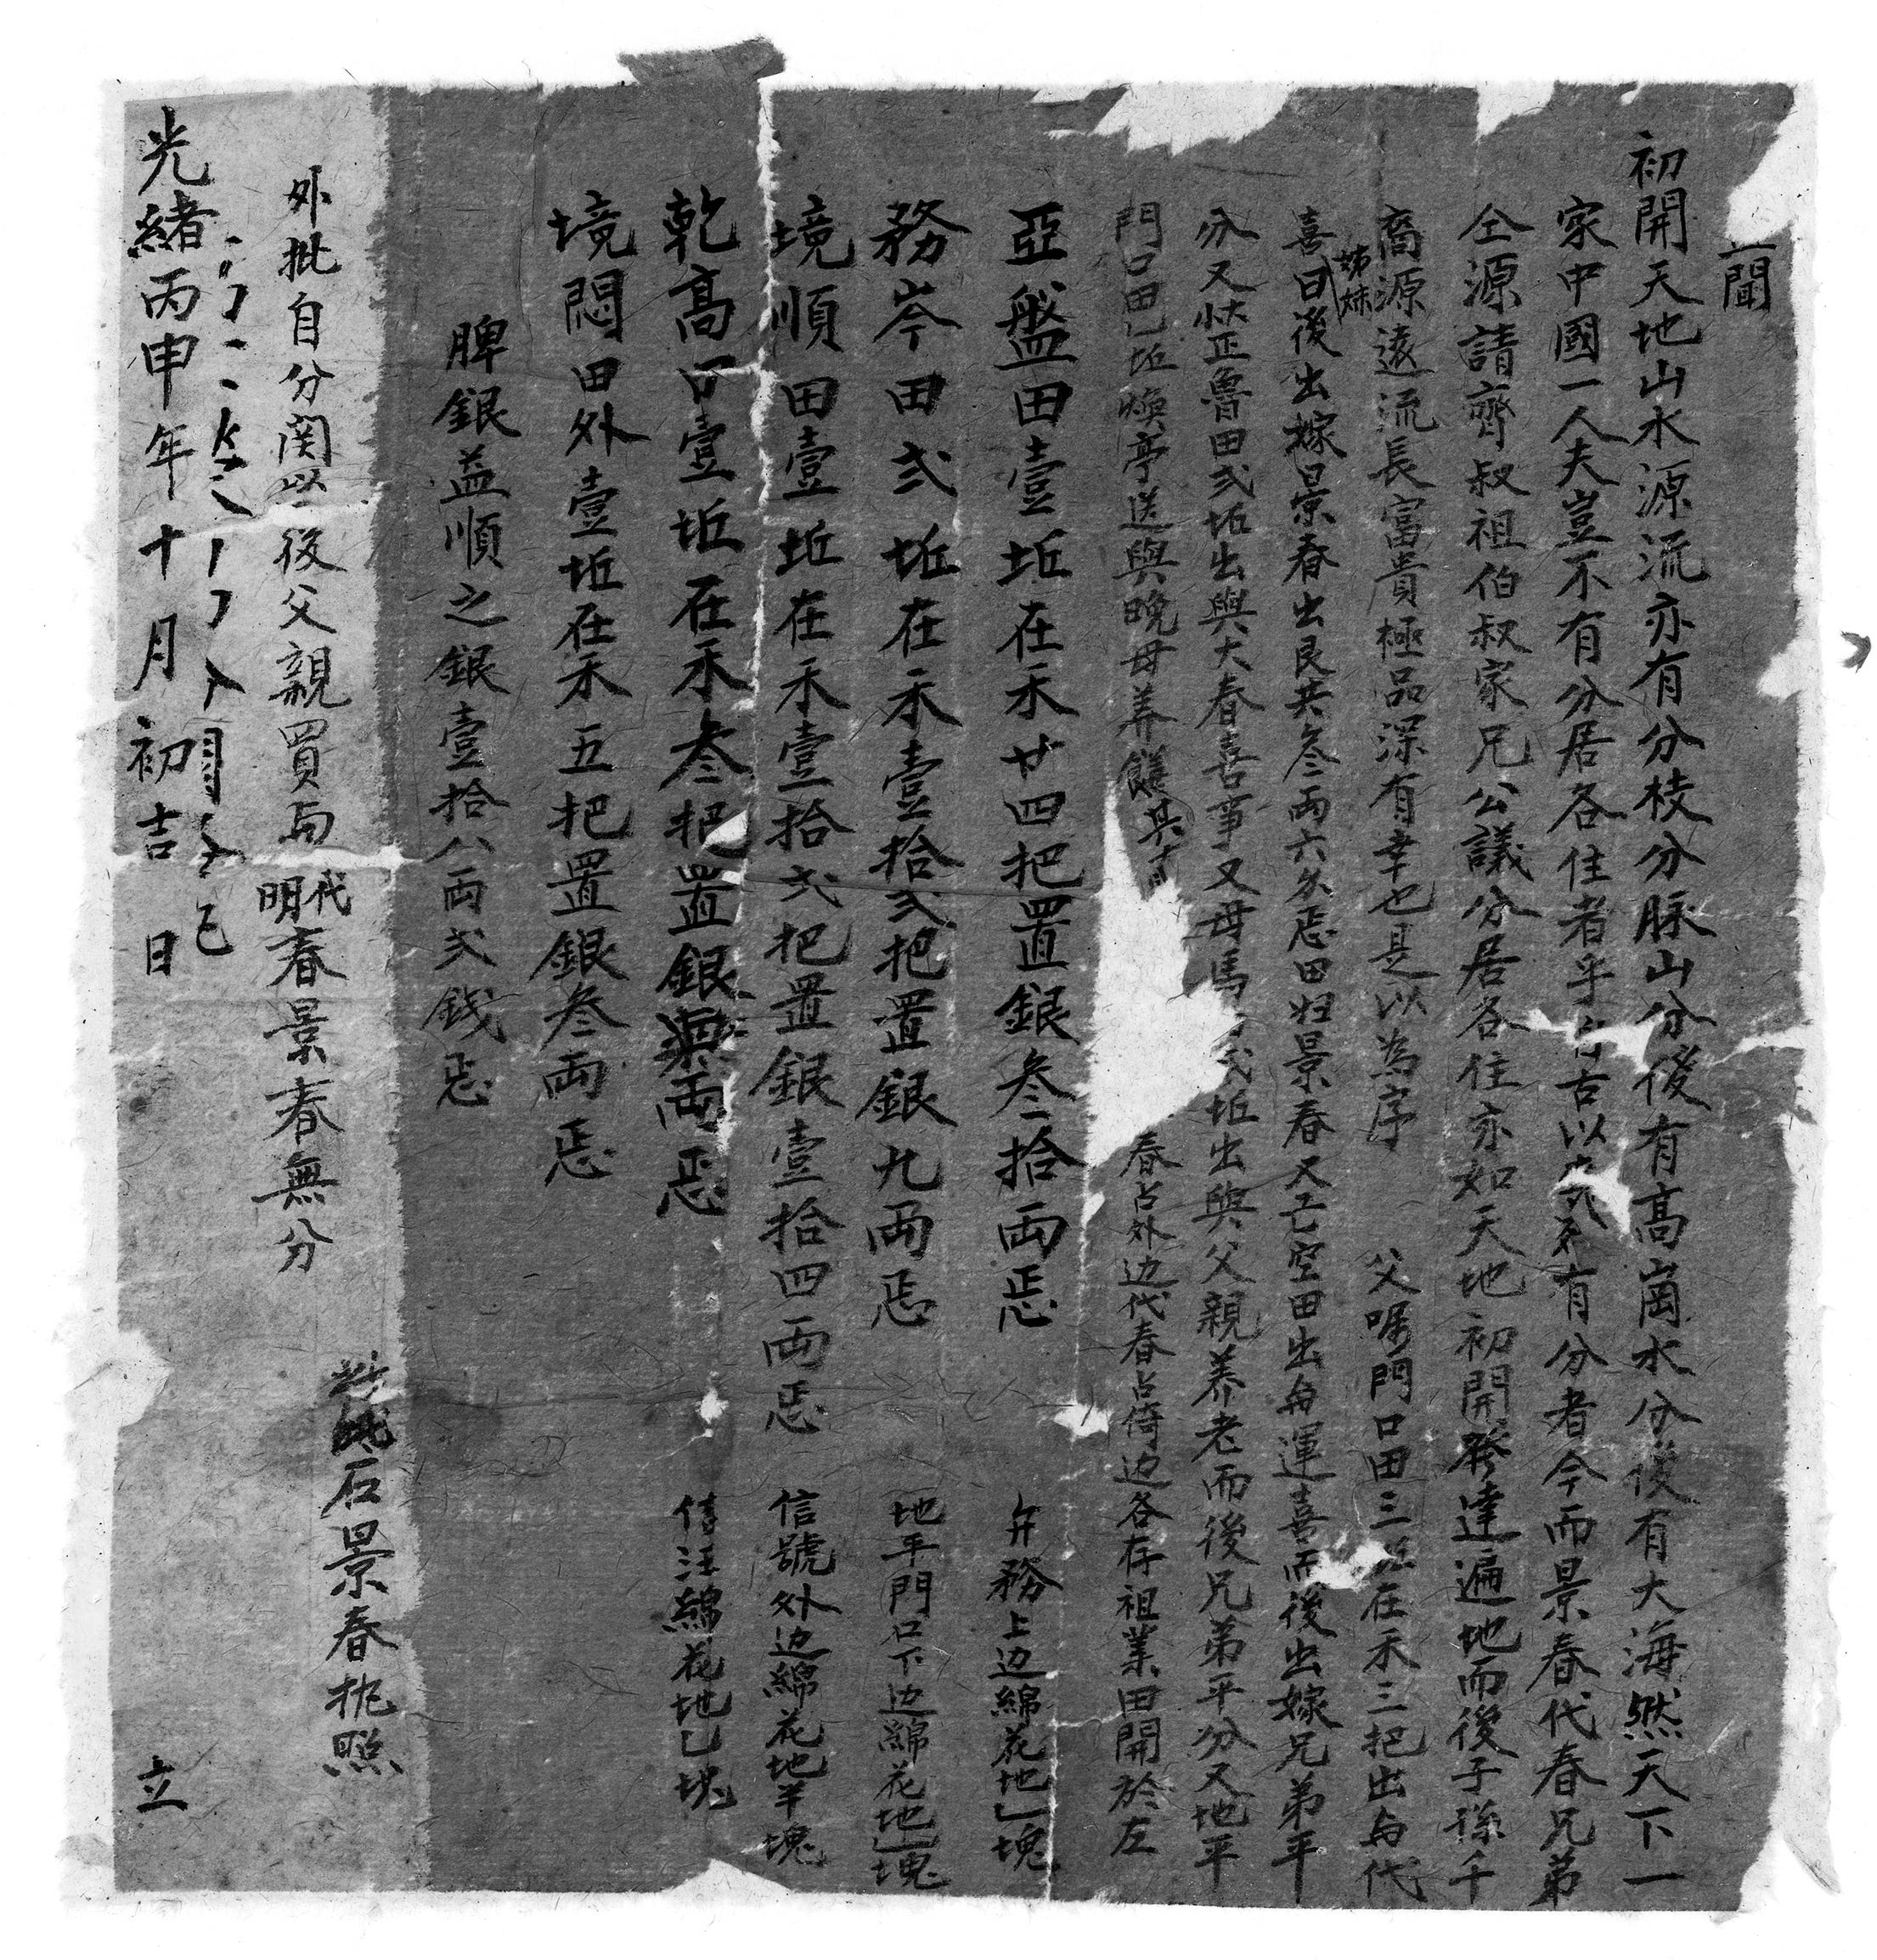 聞
初開天地山水源流亦有分枝分脉山分後有高崗水分後有大海然天下一
家中國一人夫豈不有分居各住者乎古以有分者今而景春代春兄弟
仝源請齊叔祖伯叔家兄公議分居各住亦如天地初開發達遍地而後子孫千
裔源遠流長富貴極品深有幸也是以為序 父嘱門口田三坵在禾三把出与代
姊妹
喜日後出嫁景春出艮共叁兩六錢田归景春又亡空田出與運喜而後出嫁兄弟平
分又正魯田弍坵出與大春喜事又母馬坵出與父親养老而後兄弟平分又地平
門口田坵煥亭送與晚母养其春占外边代春占倚边各存祖業田開於左
亞盤田壹坵在禾廿四把置銀叁拾兩𢙣 弁務上边綿花地乚塊
務岑田弍坵在禾壹拾弍把置銀九兩𢙣 地平門口下边綿花地乚塊
境順田壹坵在禾壹拾弍把置銀壹拾四兩𢙣 信號外边綿花地半塊
乾高田壹坵在禾叁把置銀兩𢙣 信汪綿花地乚塊
境悶田外壹坵在禾五把置銀叁兩𢙣
脾銀益順之銀壹拾八兩弍錢𢙣
石景春執照
外批自分関以後父親買与明代春景春無分
光緒丙申年十月初吉日 立